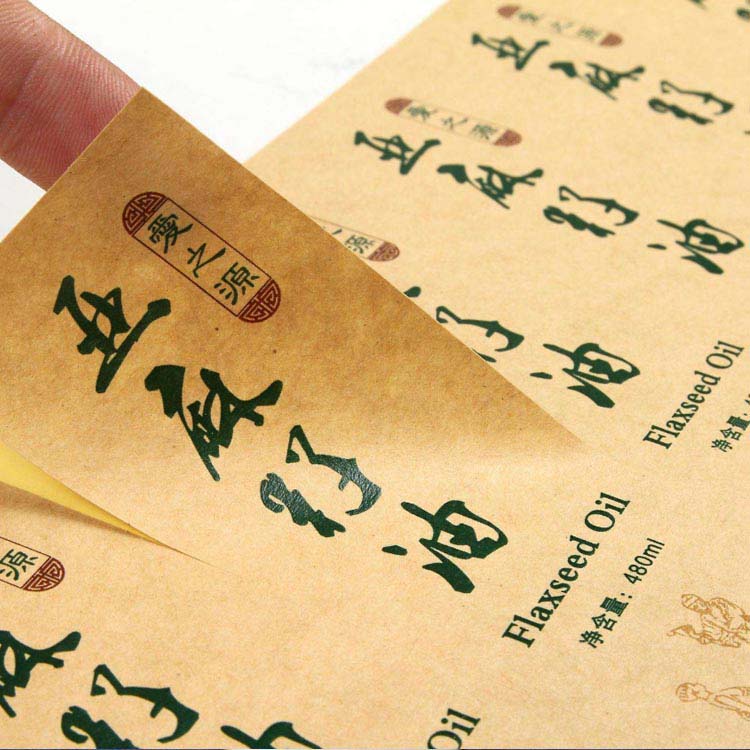 愛之源
亚麻籽油
Flaxseed Oil
净含量：480ml
愛之源
亚麻籽油
愛之源
亚麻籽油
Flaxseed Oil
净含量：
源
籽油
源
麻籽油
Oil